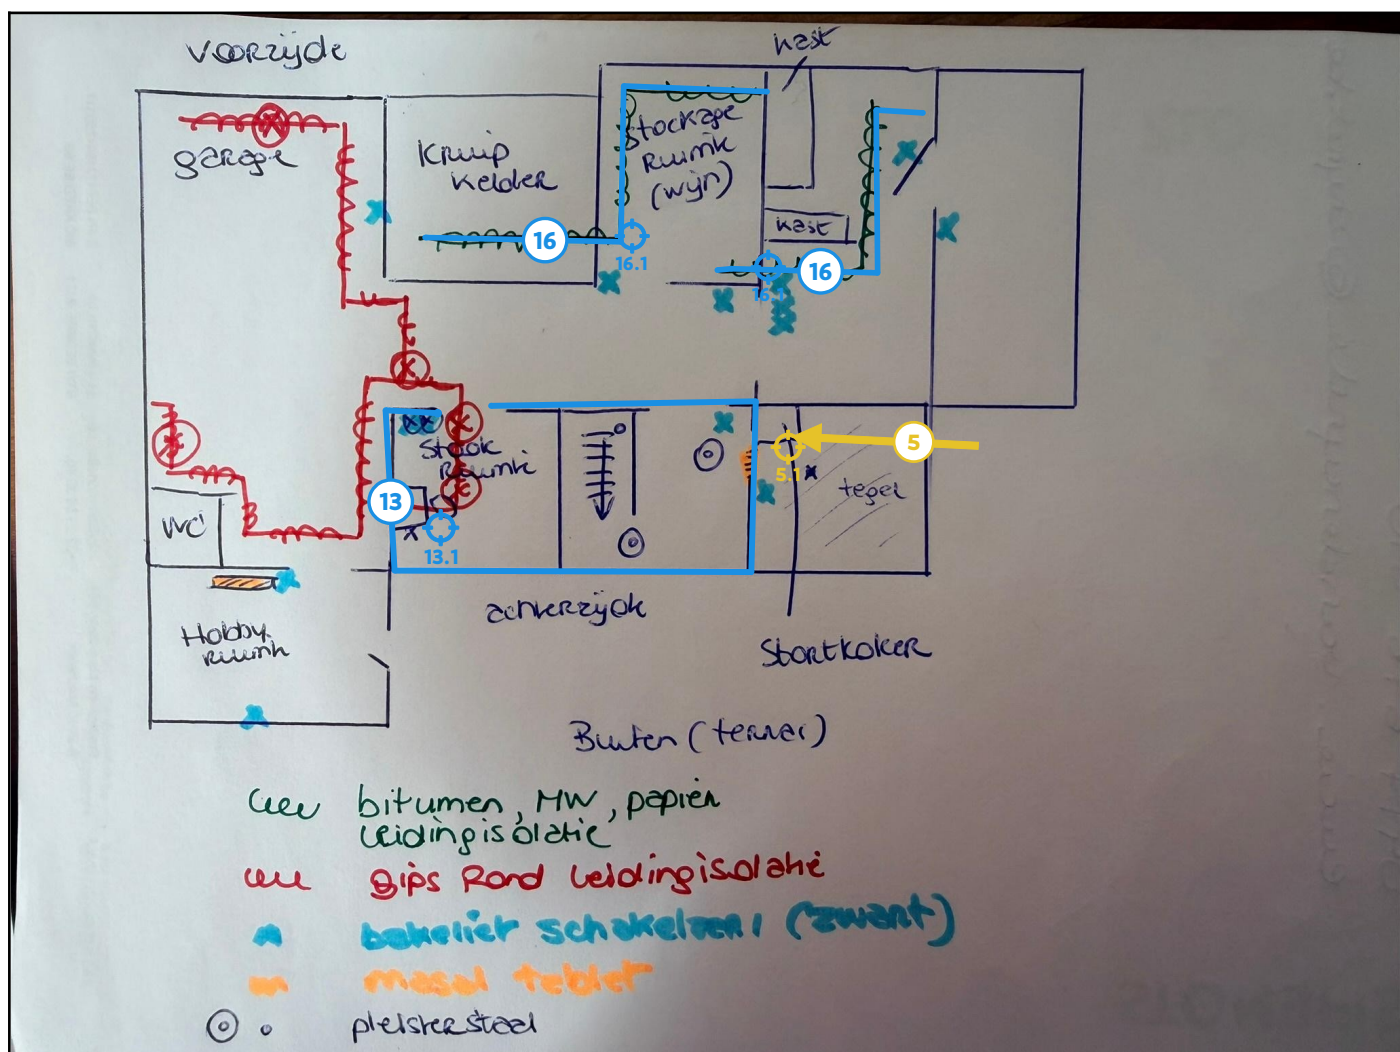 voorzijde
kast
garage
Kruip
kelder
Stockage
Ruimte
(wijn)
kast
16
16.1
16
16.1
Stook
Ruimte
13
13.1
5
5.1
tegel
WC
achterzijde
Hobby
ruimte
Stortkoker
Buiten (terras)
bitumen, MW, papier
leidingisolatie
gips Rond leidingisolatie
bakeliet schakelaar (zwart)
masal tablet
pleisterstaal